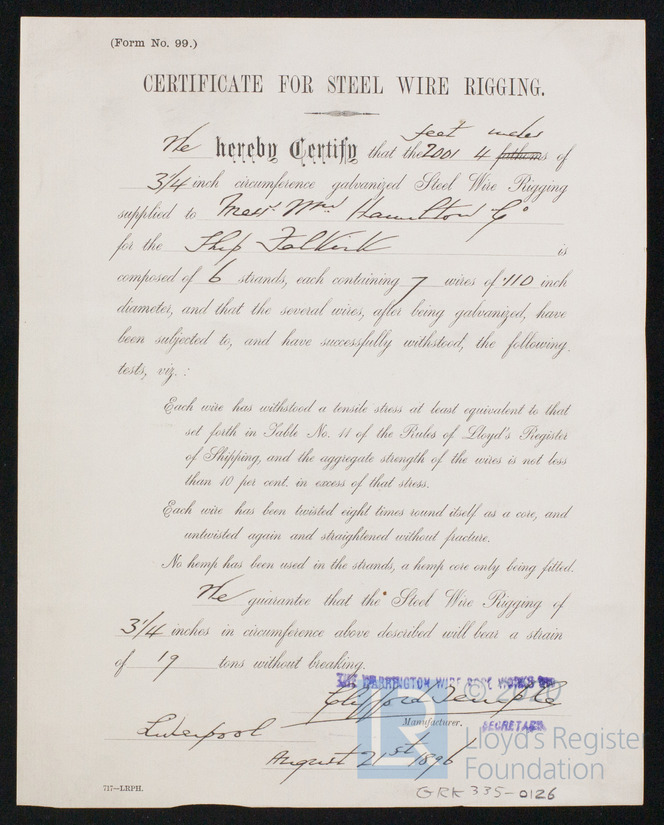 (Form No. 99.)
CERTIFICATE FOR STEEL WIRE RIGGING.
feet under
We hereby Certify that the 2001 4 fathoms of
3 1/4 inch circumference galvanized Steel Wire Rigging
supplied to Messrs Wm Hamilton & Co
for the Ship Falkirk is
composed of 6 strands, each containing 7 wires of .110 inch
diameter, and that the several wires, after being galvanized, have
been subjected to, and have successfully withstood, the following
tests, viz.:
Each wire has withstood a tensile stress at least equivalent to that
set forth in Table No. 11 of the Rules of Lloyd's Register
of Shipping, and the aggregate strength of the wires is not less
than 10 per cent. in excess of that stress.
Each wire has been twisted eight times round itself as a core, and
untwisted again and straightened without fracture.
No hemp has been used in the strands, a hemp core only being fitted.
We guarantee that the Steel Wire Rigging of
3 1/4 inches in circumference above described will bear a strain
of 19 tons without breaking.
THE WARRINGTON WIRE ROPE WORKS LTD
© 2020
Clifford Temple
Manufacturer.
SECRETARY
Liverpool
August 21st 1896
LR
Lloyd's Register
Foundation
717—LRPH.
GRK 335-0126